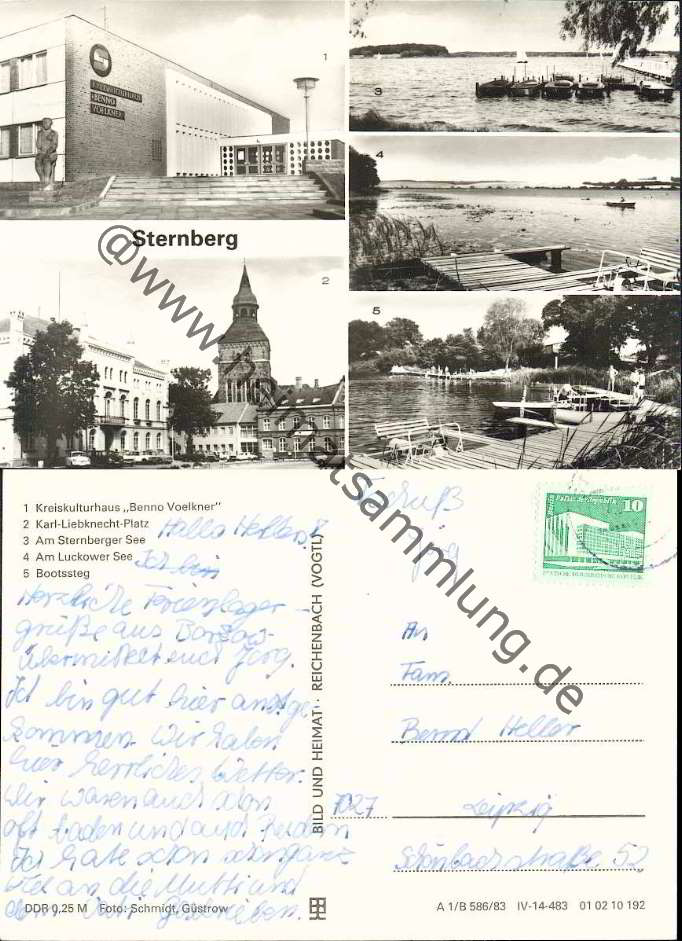 1
KREISKULTURHAUS
»BENNO
VOELKNER«
3
4
Sternberg
2
5
@www.heimatsammlung.de
1 Kreiskulturhaus „Benno Voelkner"
2 Karl-Liebknecht-Platz
3 Am Sternberger See
4 Am Luckower See
5 Bootssteg
Hallo Hellers!
Ich bin
Herzliche Ferienlager-
grüße aus
übermittelt euch Jörg.
Ich bin gut hier ange-
kommen. Wir haben
hier herrliches Wetter.
Wir waren auch schon
oft baden und auch
Ich habe schon
an die Mutti und
geschrieben.
DDR 0,25 M Foto: Schmidt, Güstrow
BILD UND HEIMAT · REICHENBACH (VOGTL)
Gruß
Jörg
Berlin Palast der Republik 10
DEUTSCHE DEMOKRATISCHE REPUBLIK
An
Fam.
Bernd Heller
7027 Leipzig
Schönbachstraße 52
A 1/B 586/83 IV-14-483 01 02 10 192